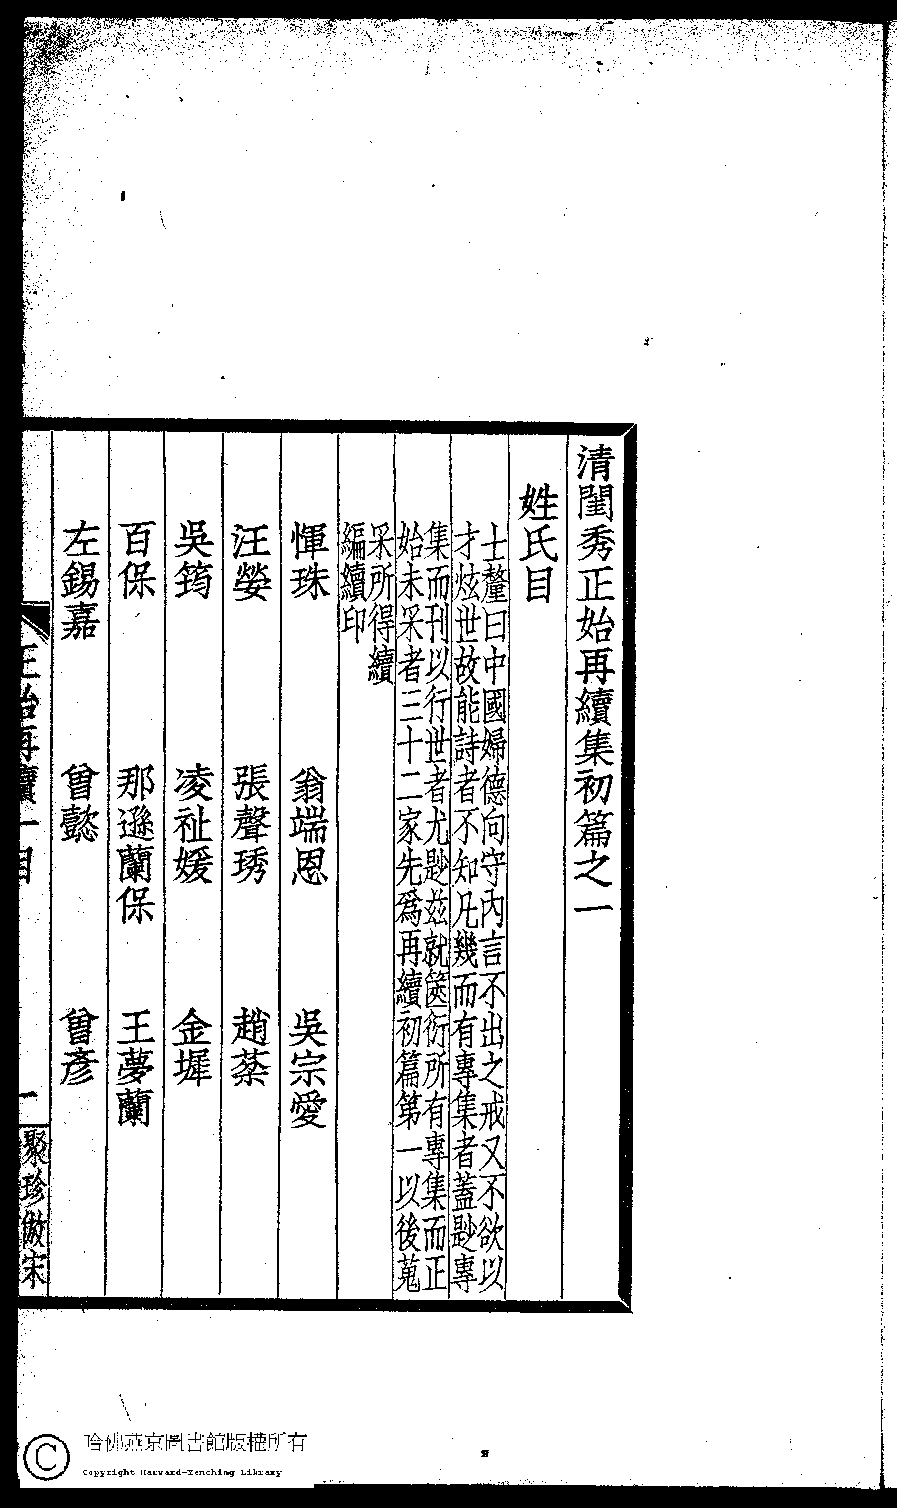 清閨秀正始再續集初篇之一
姓氏目
士釐曰中國婦德向守內言不出之戒又不欲以
才炫世故能詩者不知凡幾而有專集者蓋尟專
集而刊以行世者尤尟茲就篋衍所有專集而正
始未采者三十二家先爲再續初篇第一以後蒐
采所得續
編續印
惲珠 翁端恩 吳宗愛
汪嫈 張聲琇 趙棻
吳筠 凌祉媛 金墀
百保 那遜蘭保 王夢蘭
左錫嘉 曾懿 曾彥
正始再續一目 一 聚珍倣宋
哈佛燕京圖書館版權所有
Copyright Harvard-Yenching Library